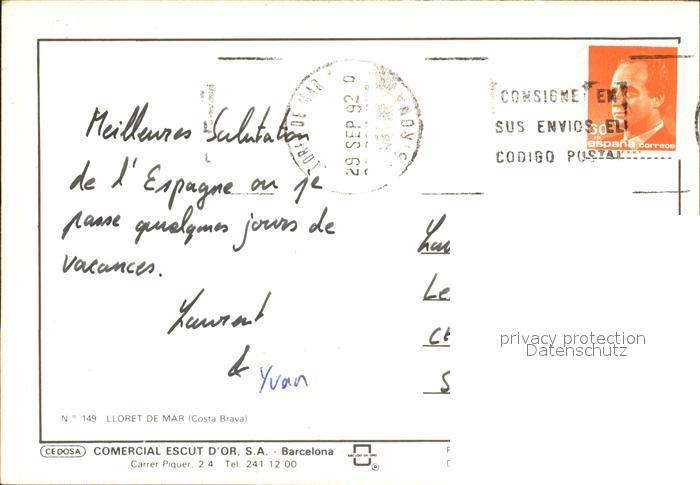 LORET DE MAR
29 SEP 92
GIRONA
CONSIGNE EN
SUS ENVIOS EL
CODIGO POSTAL
españa correos
Meilleures Salutation
de l'Espagne ou je
passe quelques jours de
vacances.
Laurent
&
Yvan
Le
privacy protection
Datenschutz
N.º 149 LLORET DE MAR (Costa Brava)
CEDOSA COMERCIAL ESCUT D'OR, S.A. - Barcelona
Carrer Piquer, 2 4 Tel. 241 12 00